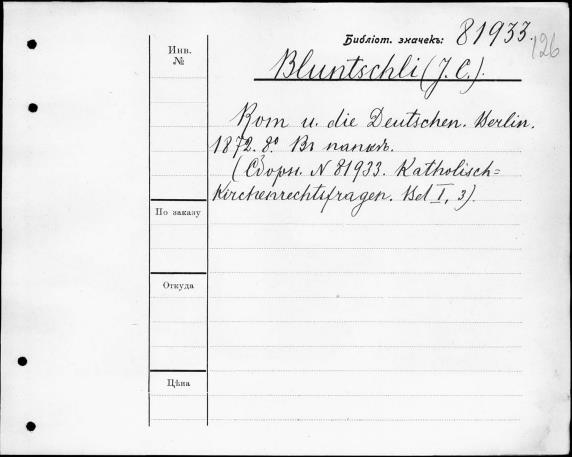 Библіот. значекъ: 81933.
126
Инв.
№
Bluntschli (J. C.).
Rom u. die Deutschen. Berlin.
1872. 8º. Въ папкѣ.
(Сборн. N 81933. Katholisch-
Kirchenrechtsfragen. Bd I, 3).
По заказу
Откуда
Цѣна